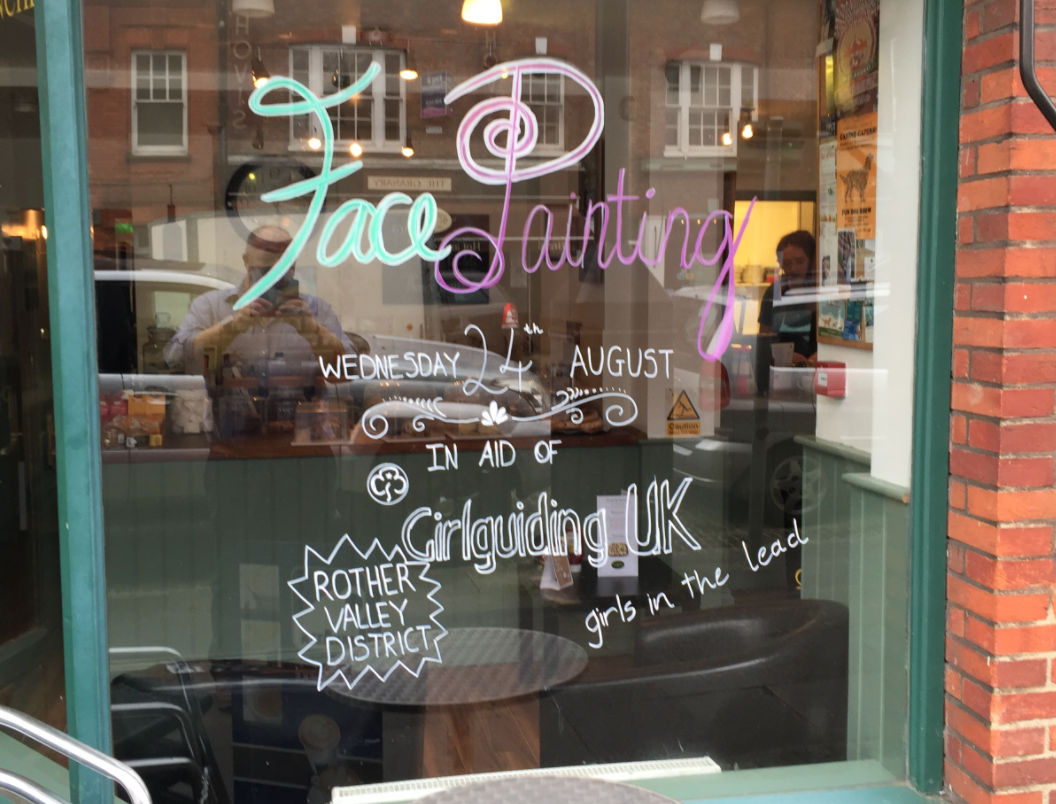 Face Painting
WEDNESDAY 24th AUGUST
IN AID OF
Girlguiding UK
girls in the lead
ROTHER
VALLEY
DISTRICT
Caution